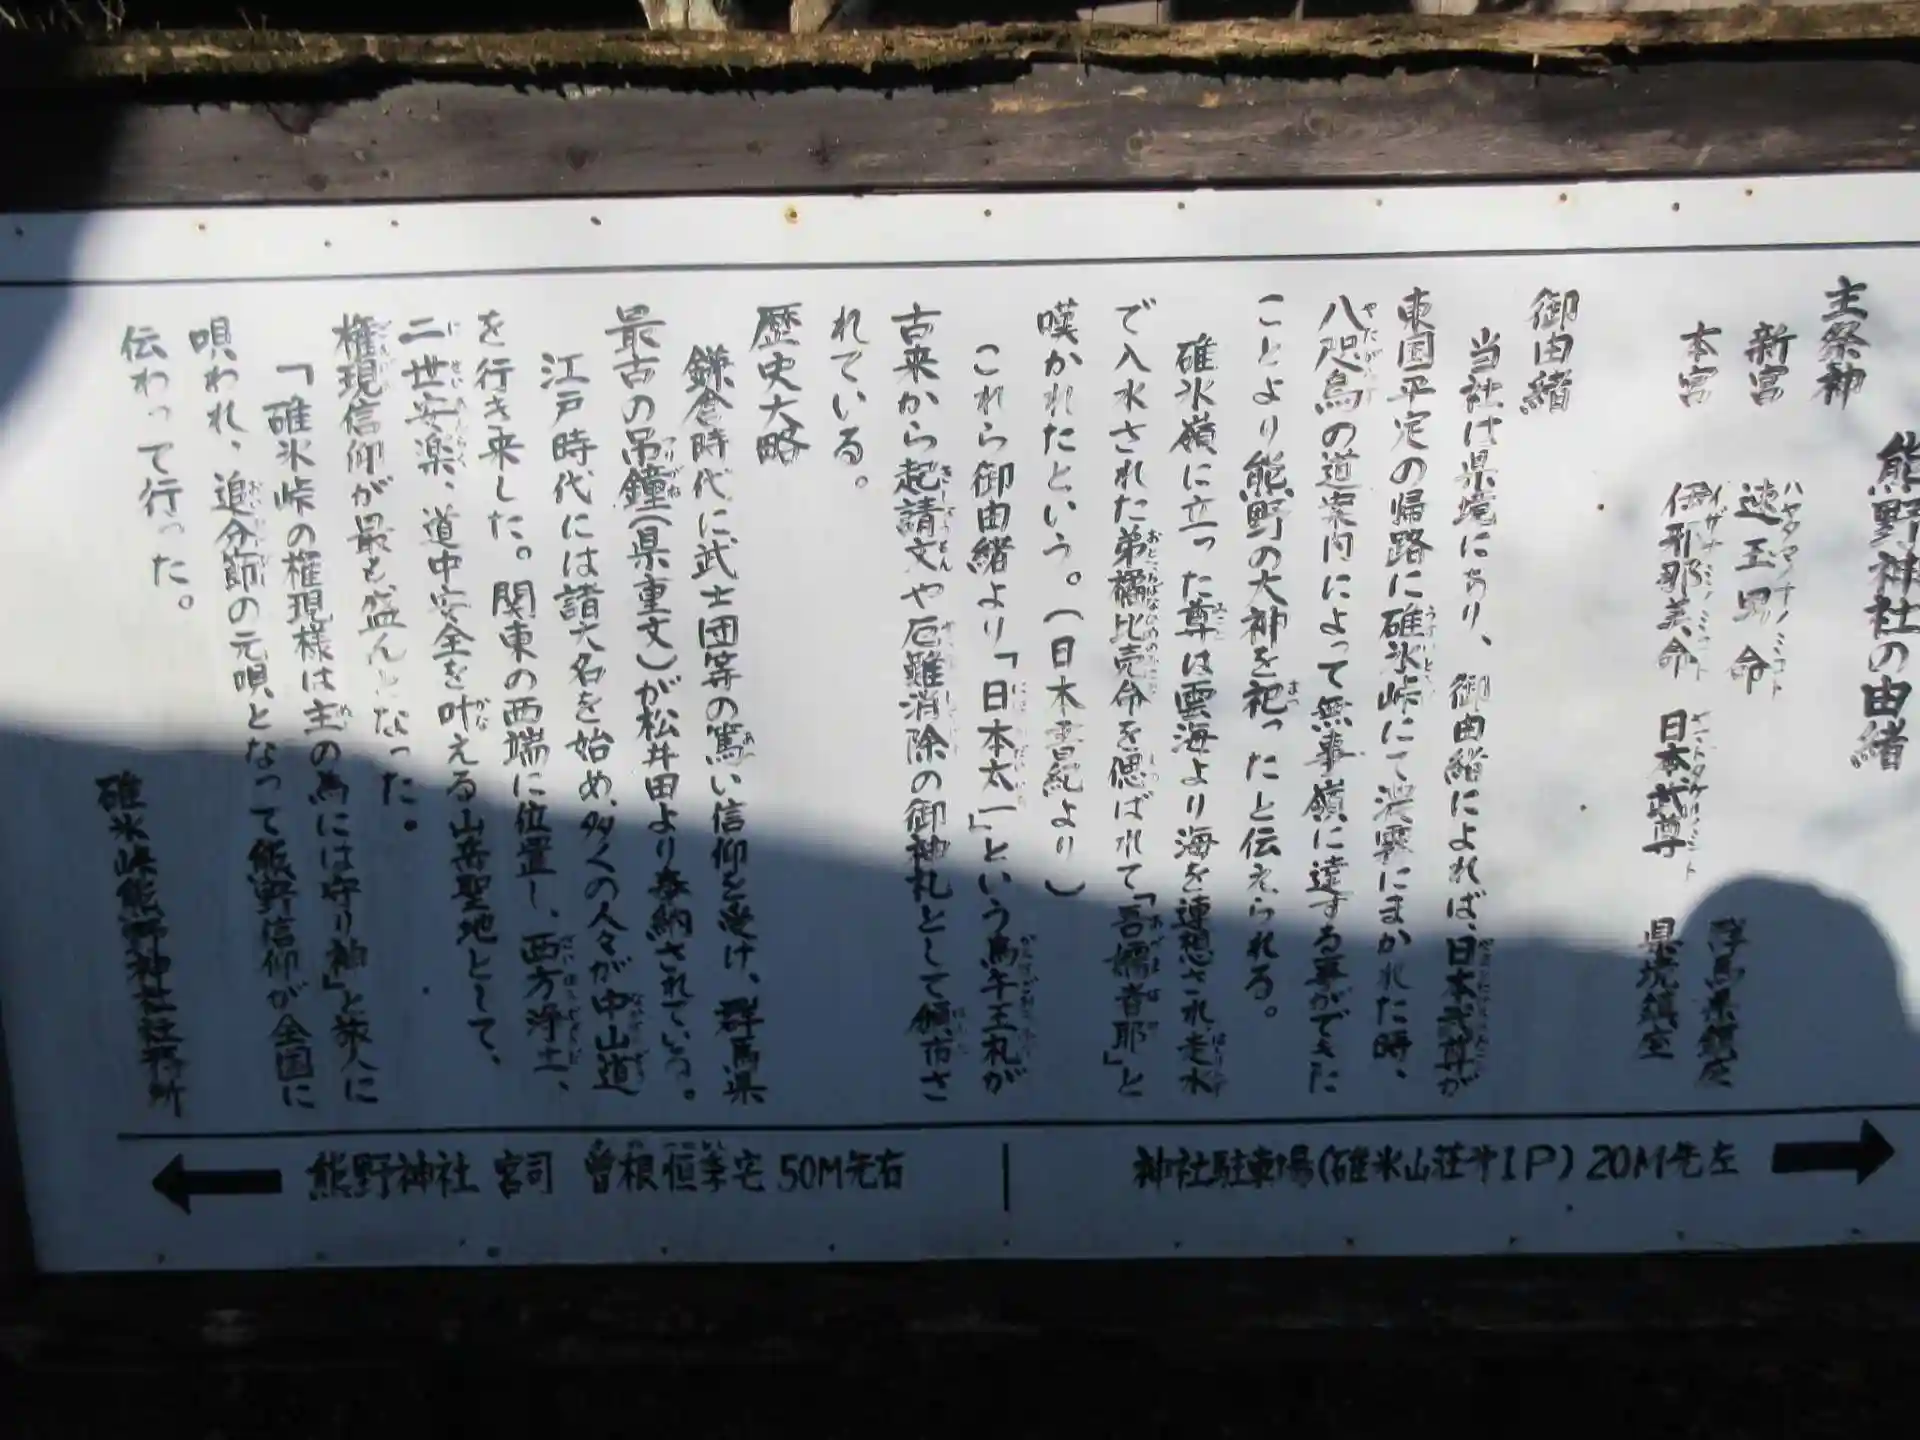 熊野神社の由緒
主祭神
新宮 速玉男命 群馬県鎮座
本宮 伊邪那美命 日本武尊 県境鎮座
御由緒
当社は県境にあり、御由緒によれば、日本武尊が
東国平定の帰路に碓氷峠にて濃霧にまかれた時、
八咫烏の道案内によって無事嶺に達する事ができた
ことより熊野の大神を祀ったと伝えられる。
碓氷嶺に立った尊は雲海より海を連想され、走水
で入水された弟橘比売命を偲ばれて「吾嬬者耶」と
嘆かれたという。(日本書紀より)
これら御由緒より「日本太一」という烏牛王札が
古来から起請文や厄難消除の御神札として頒布さ
れている。
歴史大略
鎌倉時代に武士団等の篤い信仰を受け、群馬県
最古の吊鐘(県重文)が松井田より奉納されている。
江戸時代には諸大名を始め、多くの人々が中山道
を行き来した。関東の西端に位置し、西方浄土、
二世安楽、道中安全を叶える山岳聖地として、
権現信仰が最も盛んとなった。
「碓氷峠の権現様は主の為には守り神」と旅人に
唄われ、追分節の元唄となって熊野信仰が全国に
伝わって行った。
碓氷峠熊野神社社務所
← 熊野神社 宮司 曽根恒季宅 50M先右 | 神社駐車場(碓氷山荘㐧1P) 20M先左 →